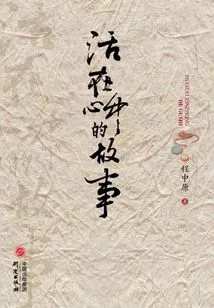 活在
心中
的故事
HUOZAI XINZHONG
DE GUSHI
程中原 著
中国出版集团
研究出版社